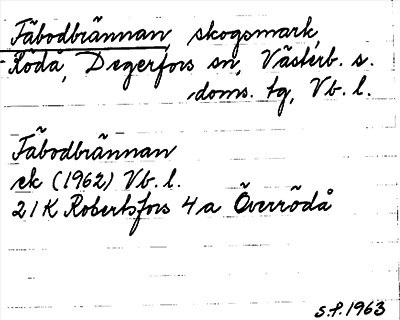 Fäbodbrännan, skogsmark,
Rödå, Degerfors sn, Västerb. s.
doms. tg, Vb. l.
Fäbodbrännan
ek (1962) Vb. l.
21K Robertsfors 4a Överrödå
S.P. 1963